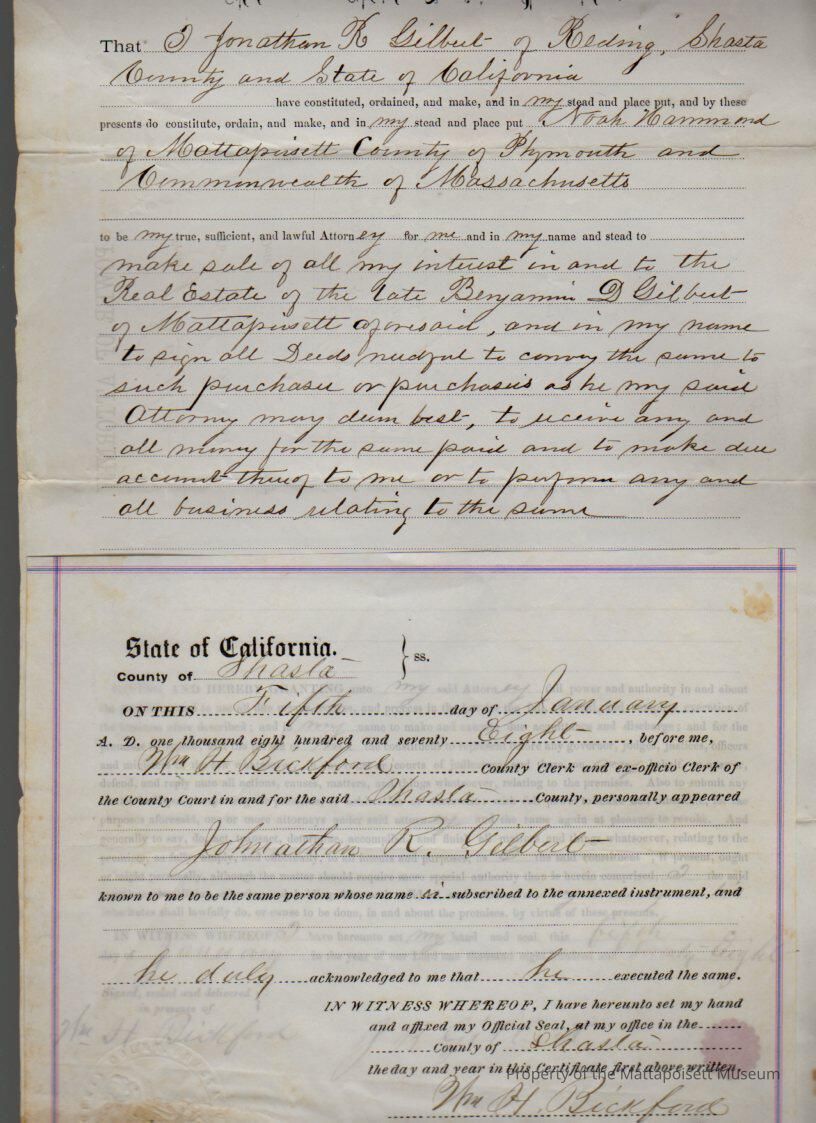 That I Jonathan R Gilbert of Reding, Shasta
County and State of California
have constituted, ordained, and make, and in my stead and place put, and by these
presents do constitute, ordain, and make, and in my stead and place put Noah Hammond
of Mattapoisett County of Plymouth and
Commonwealth of Massachusetts
to be my true, sufficient, and lawful Attorney for me and in my name and stead to
make sale of all my interest in and to the
Real Estate of the late Benjamin D Gilbert
of Mattapoisett aforesaid, and in my name
to sign all Deeds needful to convey the same to
such purchaser or purchasers as he my said
Attorney may deem best, to receive any and
all money for the same paid and to make due
account thereof to me or to perform any and
all business relating to the same
State of California.
County of Shasta } ss.
ON THIS Fifth day of January
A. D. one thousand eight hundred and seventy Eight, before me,
Wm H Bickford County Clerk and ex-officio Clerk of
the County Court in and for the said Shasta County, personally appeared
Johnathan R. Gilbert
known to me to be the same person whose name is subscribed to the annexed instrument, and
he duly acknowledged to me that he executed the same.
IN WITNESS WHEREOF, I have hereunto set my hand
and affixed my Official Seal, at my office in the
County of Shasta
the day and year in this Certificate first above written.
Property of the Mattapoisett Museum
Wm H. Bickford